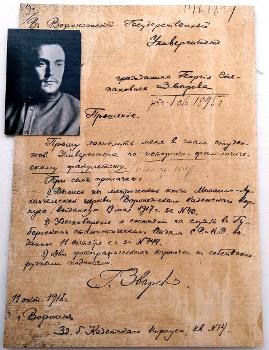 Въ Воронежскій Государственный
Университетъ
гражданина Георгія Сте-
пановича Зверева
род. 1895 г.
Прошеніе.
Прошу зачислить меня въ число студен-
товъ Университета по историко-филологиче-
скому факультету.
При семъ прилагаю:
1) Выпись изъ метрической книги Михаило-Ар-
хангельской церкви Воронежскаго Кадетскаго кор-
пуса, выданную 1917 г. за № 90.
2) Удостовѣреніе о состояніи на службѣ въ Гу-
бернскомъ статистическомъ С.Р. и К.Д. вы-
данное 11 с.г. за № 744.
3) Двѣ фотографическія карточки съ собственно-
ручною подписью.
Г. Зверев
11 окт. 1918 г.
г. Воронеж
Зд. б. Кадетскаго Корпуса, кв. № 14.